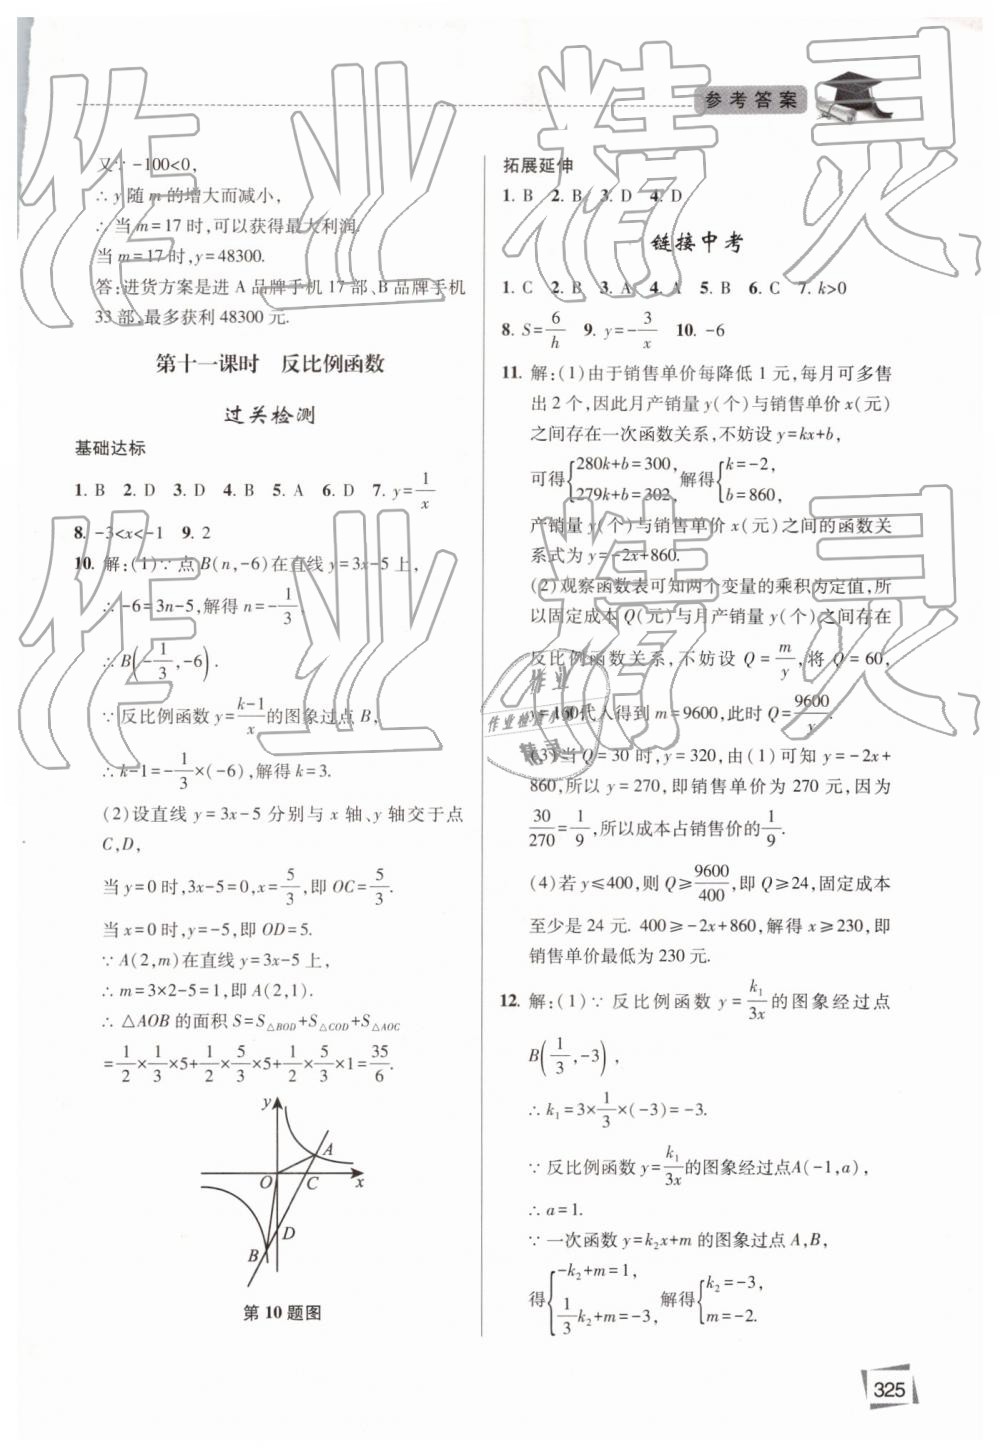 参考答案
又∵ -100<0,
∴ y 随 m 的增大而减小,
∴ 当 m=17 时,可以获得最大利润.
当 m=17 时,y=48300.
答:进货方案是进 A 品牌手机 17 部、B 品牌手机
33 部.最多获利 48300 元.
第十一课时 反比例函数
过关检测
基础达标
1. B 2. D 3. D 4. B 5. A 6. D 7. y=1/x
8. -3<x<-1 9. 2
10. 解:(1)∵ 点 B(n,-6)在直线 y=3x-5 上,
∴ -6=3n-5,解得 n=-1/3.
∴ B(-1/3,-6).
∵ 反比例函数 y=(k-1)/x的图象过点 B,
∴ k-1=-1/3×(-6),解得 k=3.
(2)设直线 y=3x-5 分别与 x 轴、y 轴交于点
C,D,
当 y=0 时,3x-5=0,x=5/3,即 OC=5/3.
当 x=0 时,y=-5,即 OD=5.
∵ A(2,m)在直线 y=3x-5 上,
∴ m=3×2-5=1,即 A(2,1).
∴ △AOB 的面积 S=S△BOD+S△COD+S△AOC
=1/2×1/3×5+1/2×5/3×5+1/2×5/3×1=35/6.
y
A
O C x
D
B
第 10 题图
拓展延伸
1. B 2. B 3. D 4. D
链接中考
1. C 2. B 3. A 4. A 5. B 6. C 7. k>0
8. S=6/h 9. y=-3/x 10. -6
11. 解:(1)由于销售单价每降低 1 元,每月可多售
出 2 个,因此月产销量 y(个)与销售单价 x(元)
之间存在一次函数关系,不妨设 y=kx+b,
可得{280k+b=300, 279k+b=302, 解得{k=-2, b=860,
产销量 y(个)与销售单价 x(元)之间的函数关
系式为 y=-2x+860.
(2)观察函数表可知两个变量的乘积为定值,所
以固定成本 Q(元)与月产销量 y(个)之间存在
反比例函数关系,不妨设 Q=m/y,将 Q=60,
y=160代入得到 m=9600,此时 Q=9600/y.
(3)当 Q=30 时,y=320,由(1)可知 y=-2x+
860,所以 y=270,即销售单价为 270 元,因为
30/270=1/9,所以成本占销售价的1/9.
(4)若 y≤400,则 Q≥9600/400,即 Q≥24,固定成本
至少是 24 元. 400≥-2x+860,解得 x≥230,即
销售单价最低为 230 元.
12. 解:(1)∵ 反比例函数 y=k₁/3x 的图象经过点
B(1/3,-3),
∴ k₁=3×1/3×(-3)=-3.
∵ 反比例函数 y=k₁/3x的图象经过点A(-1,a),
∴ a=1.
∵ 一次函数 y=k₂x+m 的图象过点 A,B,
得{-k₂+m=1, 1/3k₂+m=-3, 解得{k₂=-3, m=-2.
325
作业精灵
作业精灵